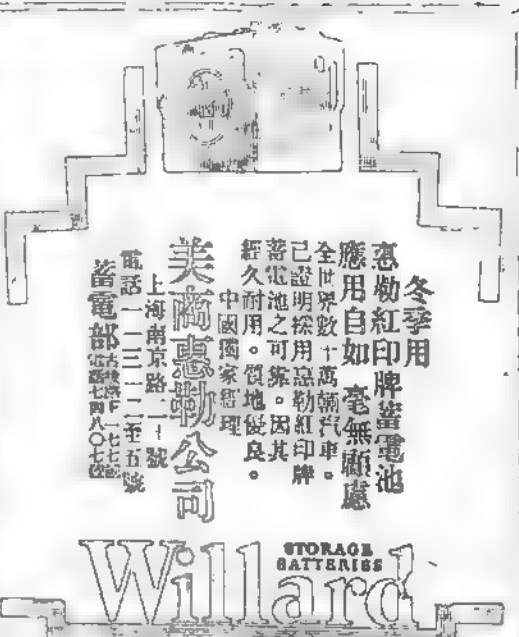 冬季用
惠勒紅印牌蓄電池
應用自如 毫無顧慮
全世界數十萬輛汽車。
已證明採用惠勒紅印牌
蓄電池之可靠。因其
經久耐用。質地優良。
中國獨家經理
美商惠勒公司
上海南京路二十號
電話一一三一二至五號
蓄電部
STORAGE
BATTERIES
Willard